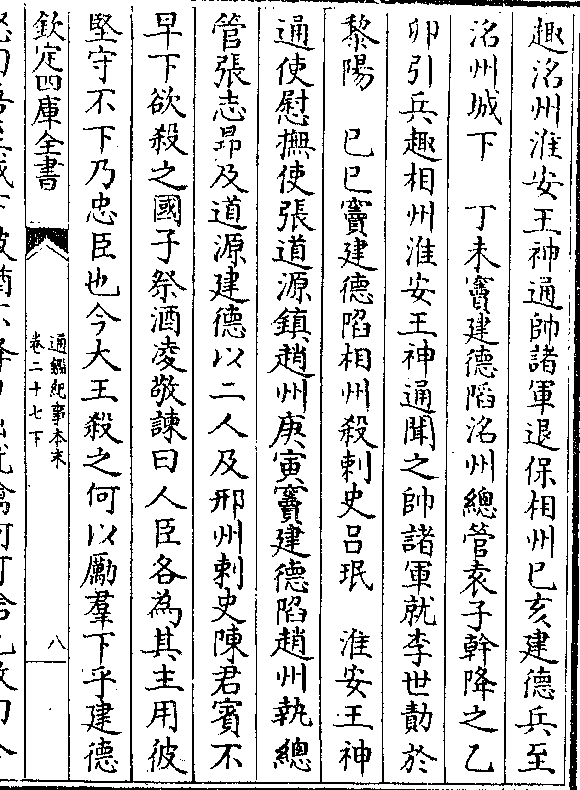 趣洺州淮安王神通帥諸軍退保相州已亥建德兵至
洺州城下　丁未竇建德陷洺州總管袁子幹降之乙
卯引兵趣相州淮安王神通聞之帥諸軍就李世勣於
黎陽　已巳竇建德陷相州殺刺史吕珉　淮安王神
通使慰撫使張道源鎮趙州庚寅竇建德陷趙州執總
管張志昂及道源建德以二人及邢州刺史陳君賓不
早下欲殺之國子祭酒凌敬諫曰人臣各為其主用彼
堅守不下乃忠臣也今大王殺之何以厲羣下乎建德
欽定四庫全書
通鑑紀事本末
卷二十七下
八